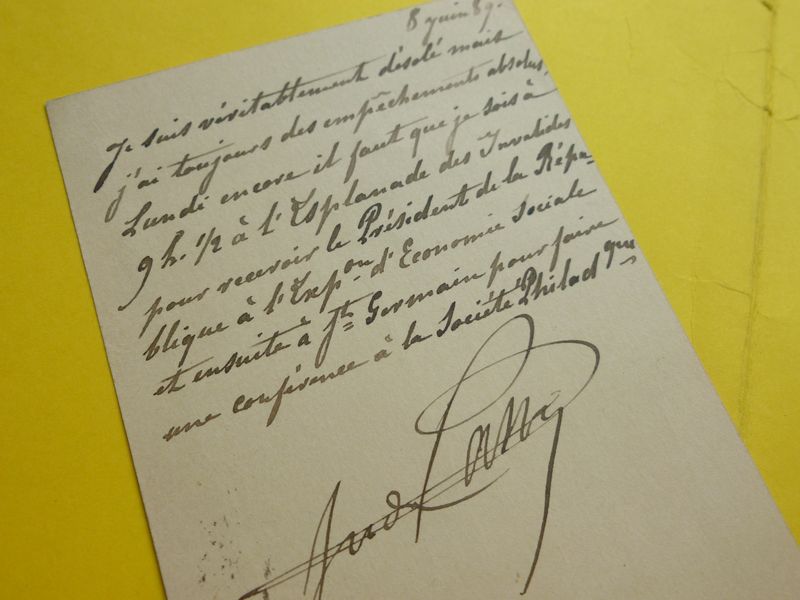 8 juin 89.
Je suis véritablement désolé mais
j'ai toujours des empêchements absolus.
Lundi encore il faut que je sois à
9 h. 1/2 à l'Esplanade des Invalides
pour recevoir le Président de la Répu-
blique à l'Exp.on d'Economie Sociale
et ensuite à St Germain pour faire
une conférence à la Société Philad